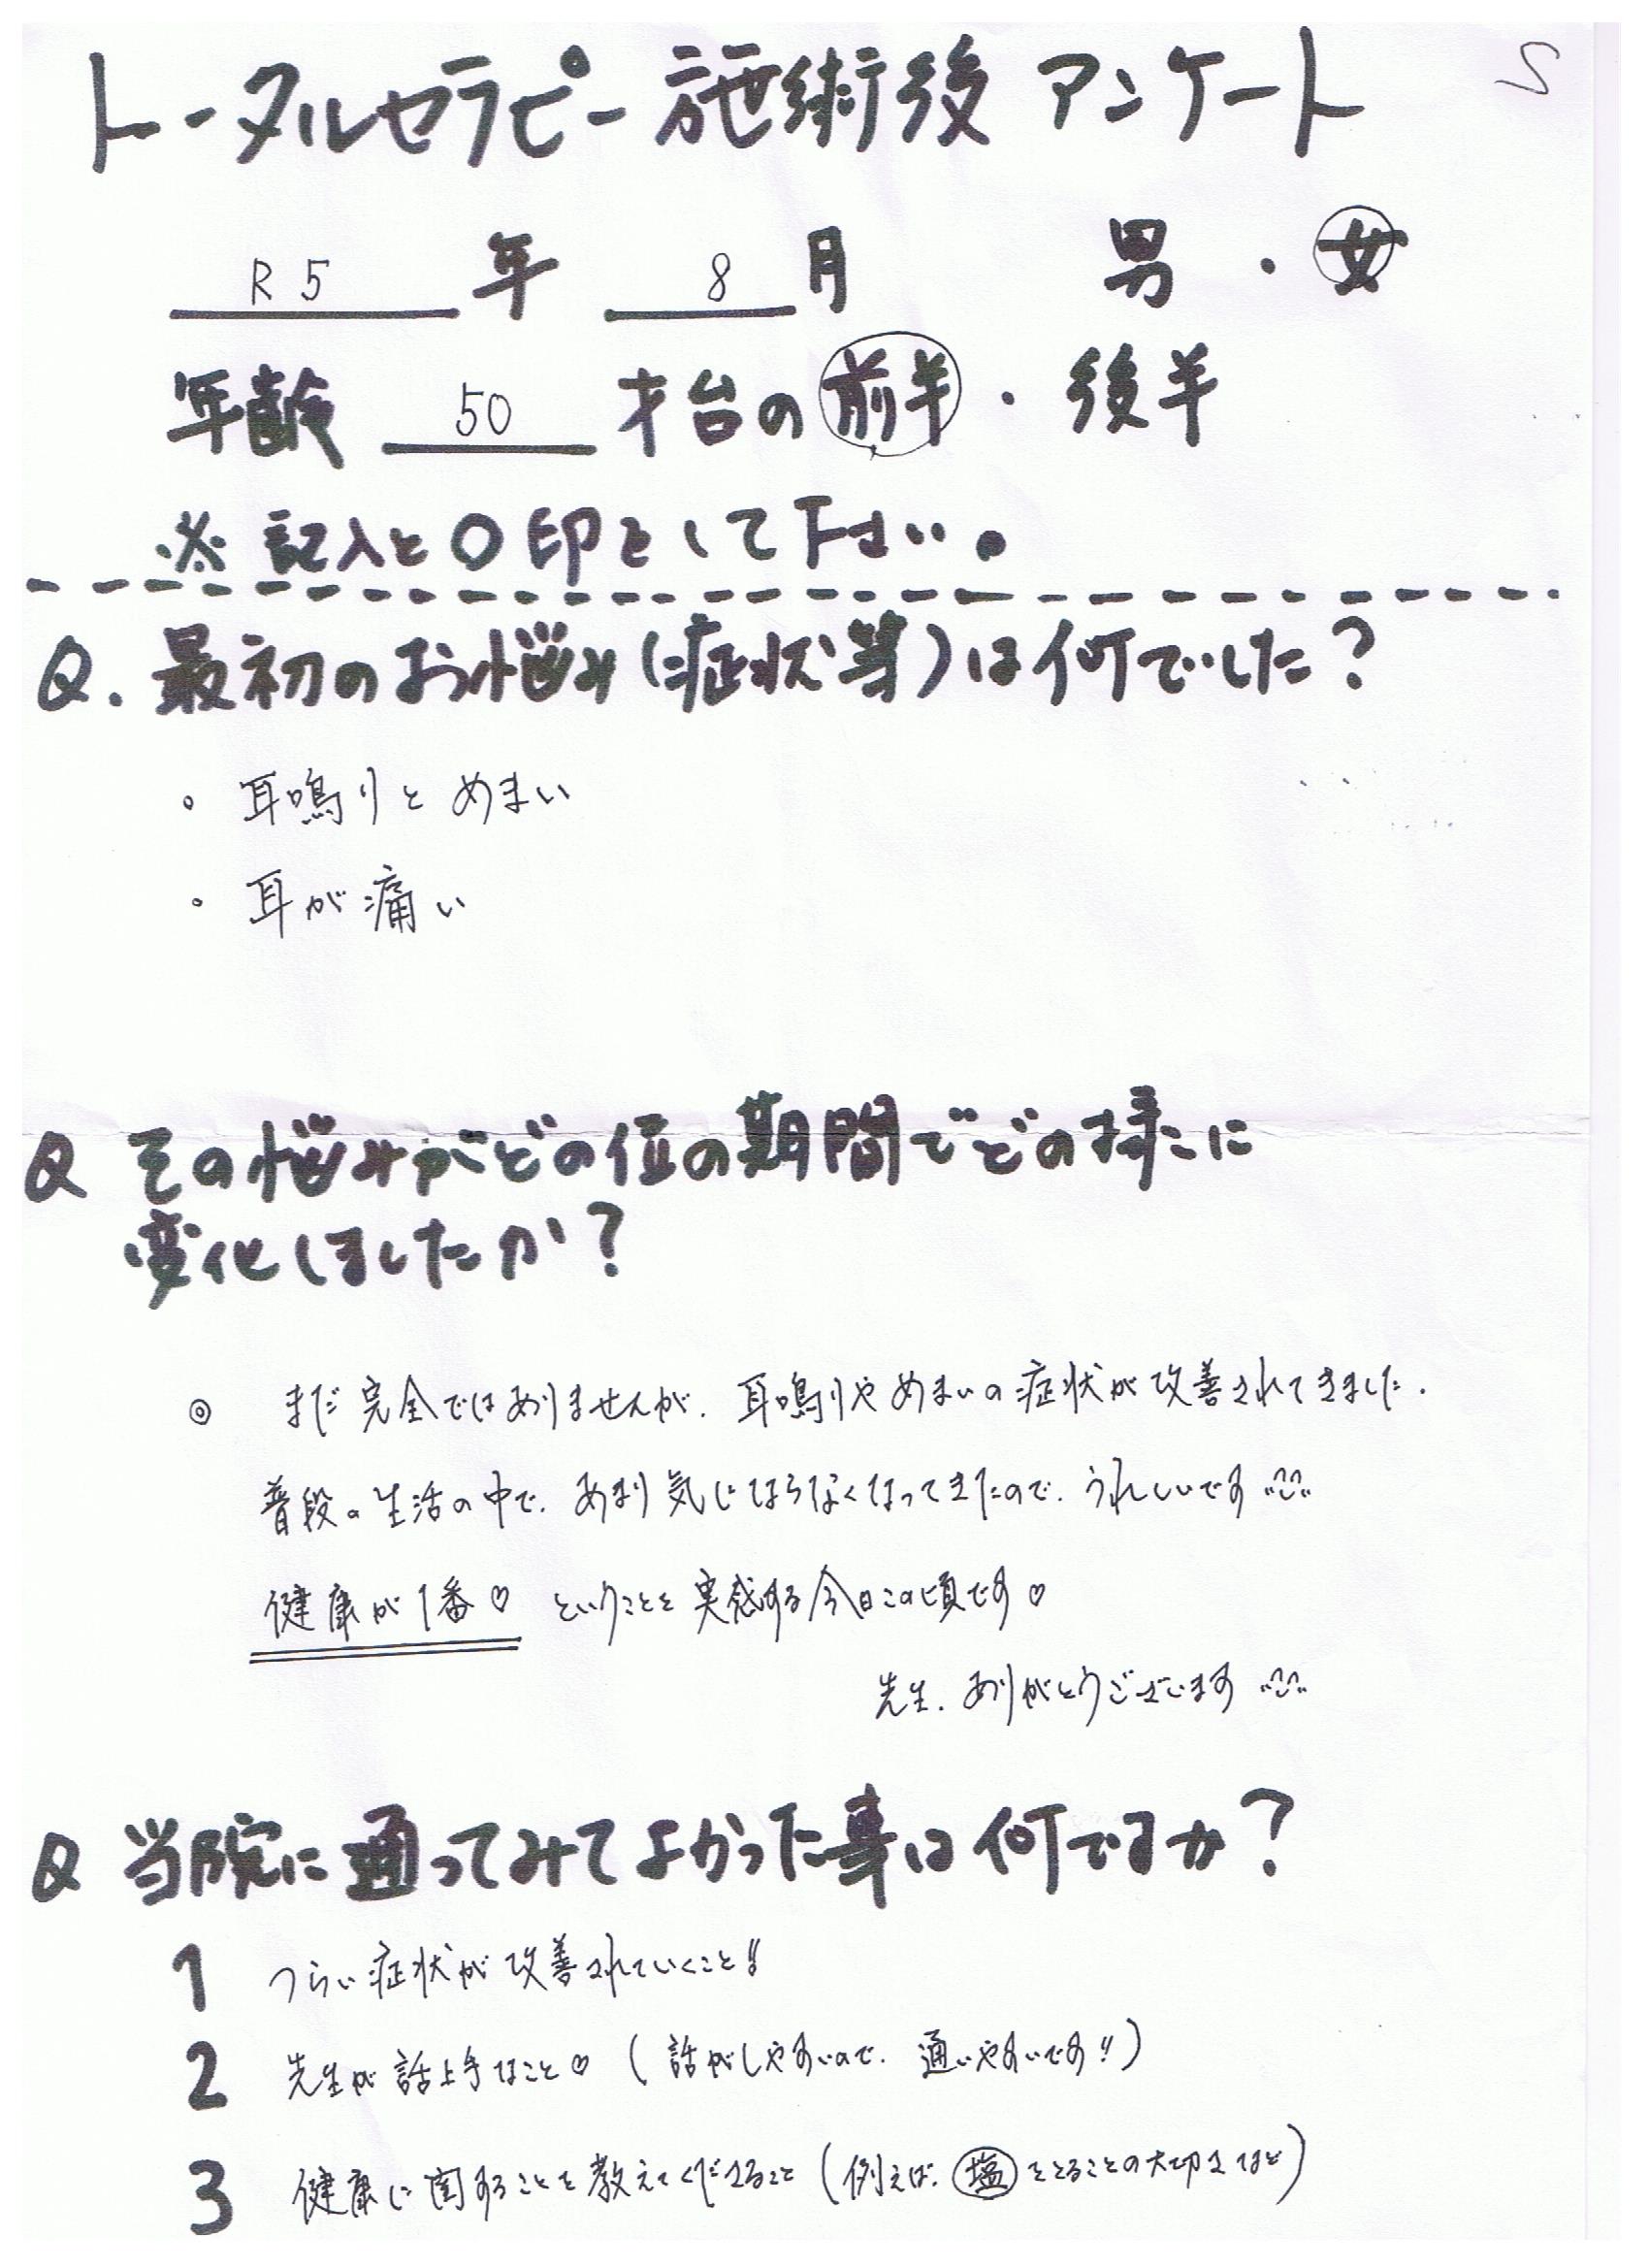 トータルセラピー施術後 アンケート
R5 年 8 月 男 ・ 女
年齢 50 才台の 前半 ・ 後半
※ 記入と〇印をして下さい。
Q. 最初のお悩み(症状等)は何でした?
・ 耳鳴りと めまい
・ 耳が痛い
Q その悩みがどの位の期間でどの様に
変化しましたか?
◎ まだ完全ではありませんが、耳鳴りやめまいの症状が改善されてきました.
普段の生活の中で、あまり気にならなくなってきたので、うれしいです
健康が1番♡ ということを実感する今日この頃です♡
先生、ありがとうございます
Q 当院に通ってみてよかった事は何ですか?
1 つらい症状が改善されていくこと!!
2 先生が話上手なこと♡ (話がしやすいので、通いやすいです!!)
3 健康に関することを教えてくださること(例えば、塩をとることの大切さなど)